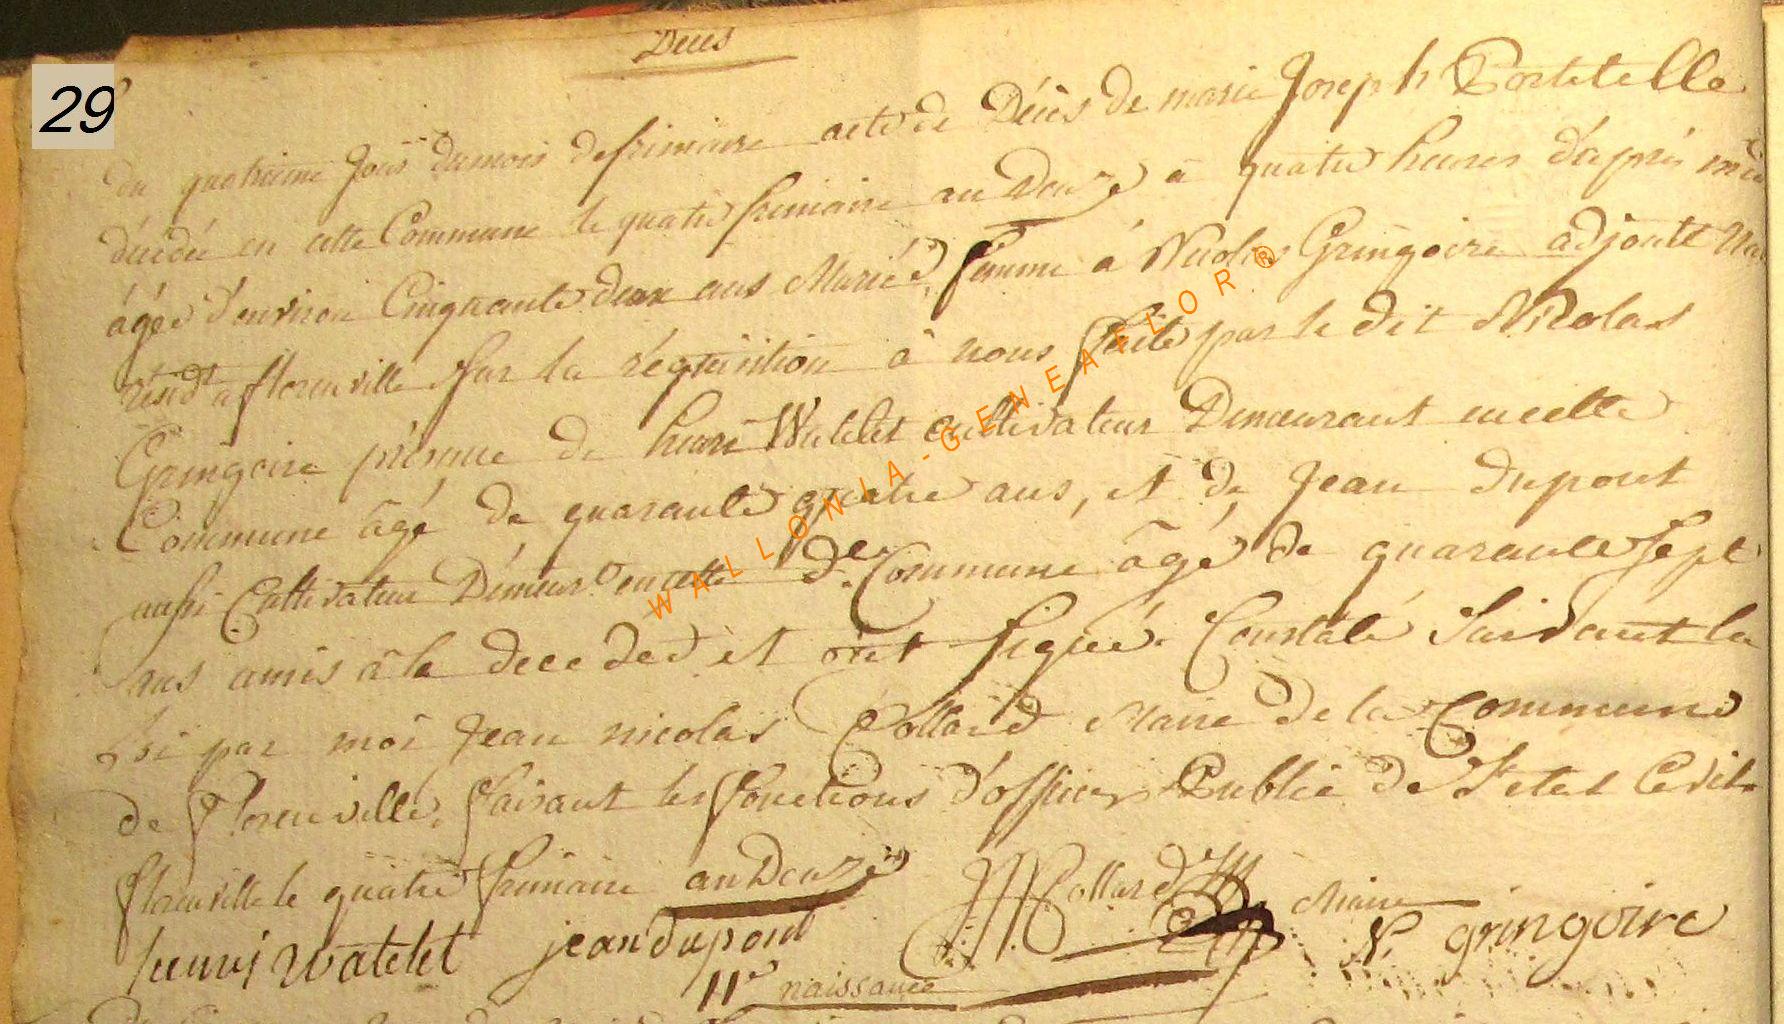 Décés
29
du quatrieme Jour du mois de frimaire acte de Décés de marie Joseph Portelelle
décédée en cette Commune le quatre frimaire an Douze à quatre heures d'après mi
âgée d'environ Cinquante deux ans Mariée, femme à Nicolas Gringoire adjoute
résidt a florenville sur la réquisition à nous faite par le dit Nicolas
Gringoire présence de henri Watelet cultivateur Demeurant en cette
Commune âgé de quarante quatre ans, et de Jean dupont
aussi Cultivateur Démeurt en cette de Commune âgé de quarante sept
ans amis à la decedeé et ont signée. Constaté Suivant la
loi par moi Jean nicolas Collard Maire de la Commune
de florenville, faisant les fonctions d'officier Public de l'etat Civil
florenville le quatre frimaire an Douze
JN Collard Maire
henri watelet jean dupont N. gringoire
11e naissance
WALLONIA-GENEAFLOR®